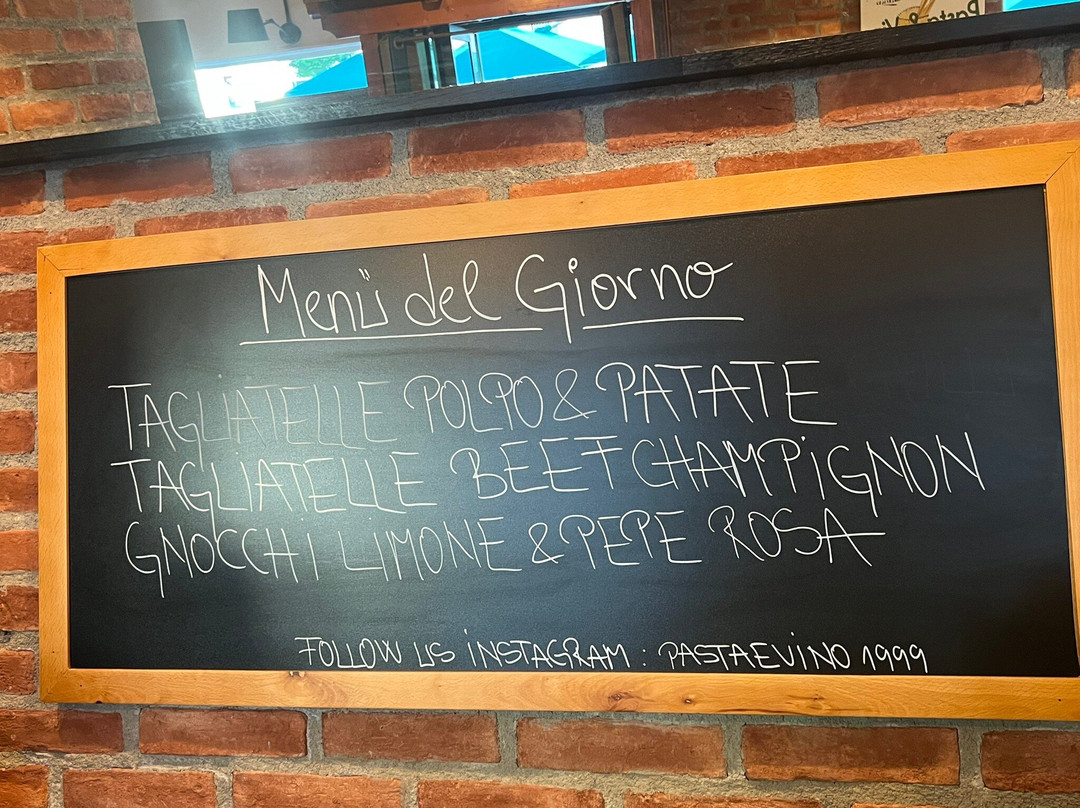 Pasta &
Menü del Giorno
TAGLiATELLE POLPO & PATATE
TAGLIATELLE BEEF CHAMPiGNON
GNOCCHi LiMONE & PEPE ROSA
FOLLOW US iNSTAGRAM : PASTAEViNO 1999